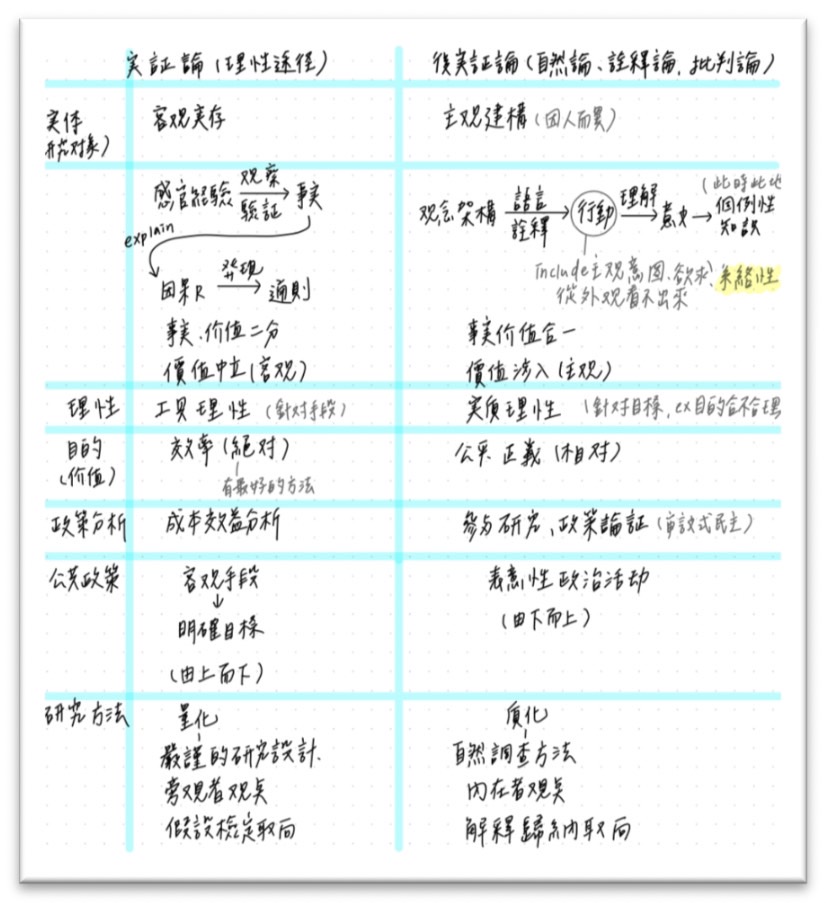 实証論(理性途径) 後实証論(自然論、詮釋論、批判論)
实体 客观实存 主观建構(因人而異)
研究对象)
感官経驗 观察 驗証 事実
explain
因果R 發現 通則
观念架構 語言 詮釋 行動 理解 意义 (此時此地
個例性
知識
include主观意図、欲求、系絡性
從外观看不出來
事実、价值二分 事実价值合一
價值中立(客观) 價值涉入(主观)
理性 工具理性(針对手段) 实质理性(針对目標,ex目的合不合理
目的 效率(絕对) 公平 正義(相对)
(价值) 有最好的方法
政策分析 成本效益分析 參与研究、政策論証(审议式民主)
公共政策 客观手段 表意性政治活动
明確目標 (由下而上)
(由上而下)
研究方法 量化 质化
嚴謹的研究設計. 自然調查方法
旁观者观点 内在者观点
假設檢定取向 解釋歸納取向